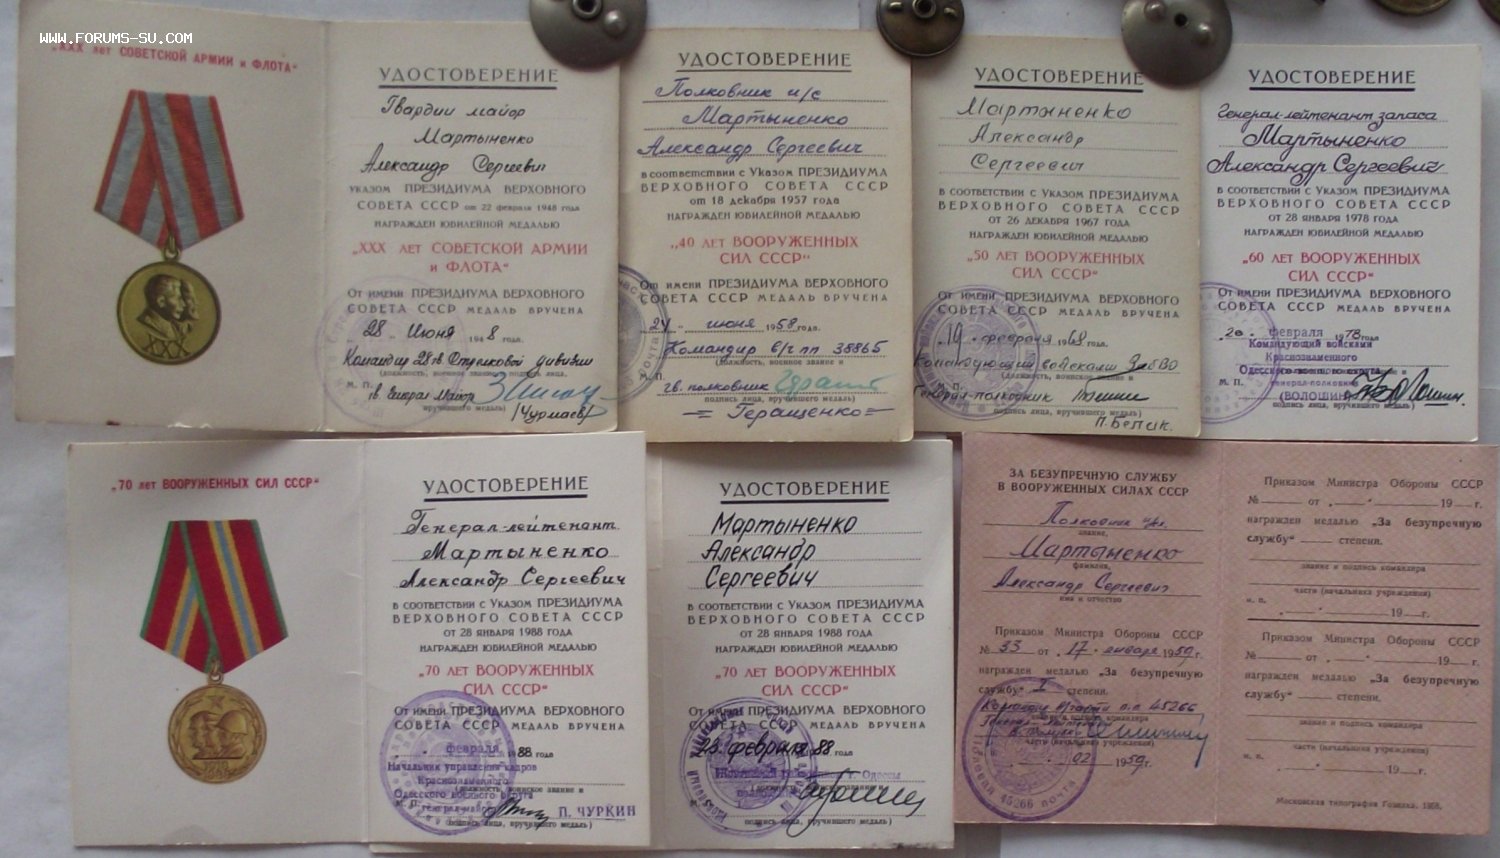 www.FORUMS-SU.COM
„XXX лет СОВЕТСКОЙ АРМИИ и ФЛОТА“
УДОСТОВЕРЕНИЕ
Гвардии майор
Мартыненко
Александр Сергеевич
указом ПРЕЗИДИУМА ВЕРХОВНОГО
СОВЕТА СССР от 22 февраля 1948 года
НАГРАЖДЕН ЮБИЛЕЙНОЙ МЕДАЛЬЮ
„XXX лет СОВЕТСКОЙ АРМИИ
и ФЛОТА“
От имени ПРЕЗИДИУМА ВЕРХОВНОГО
СОВЕТА СССР МЕДАЛЬ ВРУЧЕНА
28 Июня 1948 года.
Командир 28 гв. Стрелковой дивизии
(должность, военное звание, подпись лица,
М. П. гв. Генерал Майор
вручившего медаль)
/Чурмаев/
УДОСТОВЕРЕНИЕ
Полковник и/с
Мартыненко
Александр Сергеевич
в соответствии с Указом ПРЕЗИДИУМА
ВЕРХОВНОГО СОВЕТА СССР
от 18 декабря 1957 года
НАГРАЖДЕН ЮБИЛЕЙНОЙ МЕДАЛЬЮ
„40 лет ВООРУЖЕННЫХ
СИЛ СССР“
От имени ПРЕЗИДИУМА ВЕРХОВНОГО
СОВЕТА СССР МЕДАЛЬ ВРУЧЕНА
24 июня 1958 года.
Командир в/ч пп 38865
(должность, военное звание и
М. П.
гв. полковник
подпись лица, вручившего медаль)
= Геращенко =
УДОСТОВЕРЕНИЕ
Мартыненко
Александр
Сергеевич
в соответствии с Указом ПРЕЗИДИУМА
ВЕРХОВНОГО СОВЕТА СССР
от 26 декабря 1967 года
НАГРАЖДЕН ЮБИЛЕЙНОЙ МЕДАЛЬЮ
„50 лет ВООРУЖЕННЫХ
СИЛ СССР“
От имени ПРЕЗИДИУМА ВЕРХОВНОГО
СОВЕТА СССР МЕДАЛЬ ВРУЧЕНА
19 февраля 1968 года.
Командующий войсками ЗабВО
(должность, военное звание и
М. П.
Генерал-полковник
подпись лица, вручившего медаль)
П. Белик.
УДОСТОВЕРЕНИЕ
Генерал-лейтенант запаса
Мартыненко
Александр Сергеевич
в соответствии с Указом ПРЕЗИДИУМА
ВЕРХОВНОГО СОВЕТА СССР
от 28 января 1978 года
НАГРАЖДЕН ЮБИЛЕЙНОЙ МЕДАЛЬЮ
„60 лет ВООРУЖЕННЫХ
СИЛ СССР“
От имени ПРЕЗИДИУМА ВЕРХОВНОГО
СОВЕТА СССР МЕДАЛЬ ВРУЧЕНА
20 февраля 1978 года
Командующий войсками
Краснознаменного
Одесского военного округа
генерал-полковник
(ВОЛОШИН)
подпись лица, вручившего медаль)
„70 лет ВООРУЖЕННЫХ СИЛ СССР“
УДОСТОВЕРЕНИЕ
Генерал-лейтенант
Мартыненко
Александр Сергеевич
в соответствии с Указом ПРЕЗИДИУМА
ВЕРХОВНОГО СОВЕТА СССР
от 28 января 1988 года
НАГРАЖДЕН ЮБИЛЕЙНОЙ МЕДАЛЬЮ
„70 лет ВООРУЖЕННЫХ
СИЛ СССР“
От имени ПРЕЗИДИУМА ВЕРХОВНОГО
СОВЕТА СССР МЕДАЛЬ ВРУЧЕНА
февраля 1988 года
Начальник управления кадров
Краснознаменного
(должность, военное звание и
Одесского военного округа
М. П. генерал-майор
П. ЧУРКИН
подпись лица, вручившего медаль)
УДОСТОВЕРЕНИЕ
Мартыненко
Александр
Сергеевич
в соответствии с Указом ПРЕЗИДИУМА
ВЕРХОВНОГО СОВЕТА СССР
от 28 января 1988 года
НАГРАЖДЕН ЮБИЛЕЙНОЙ МЕДАЛЬЮ
„70 лет ВООРУЖЕННЫХ
СИЛ СССР“
От имени ПРЕЗИДИУМА ВЕРХОВНОГО
СОВЕТА СССР МЕДАЛЬ ВРУЧЕНА
23 февраля 1988 года
г. Одессы
(должность, военное звание и
М. П.
подпись лица, вручившего медаль)
ЗА БЕЗУПРЕЧНУЮ СЛУЖБУ
В ВООРУЖЕННЫХ СИЛАХ СССР
Полковник
звание,
Мартыненко
фамилия,
Александр Сергеевич
имя и отчество
Приказом Министра Обороны СССР
№ 33 от „17“ января 1959 г.
награжден медалью „За безупречную
службу“ I степени.
Командир в/части п.п. 45266
звание и подпись командира
части (начальника учреждения)
02 1959 г.
полевая почта 45266
Приказом Министра Обороны СССР
№ от „ “ 19 г.
награжден медалью „За безупречную
службу“ степени.
звание и подпись командира
части (начальника учреждения)
м. п. „ “ 19 г.
Приказом Министра Обороны СССР
№ от „ “ 19 г.
награжден медалью „За безупречную
службу“ степени.
звание и подпись командира
части (начальника учреждения)
м. п. „ “ 19 г.
Московская типография Гознака. 1958.